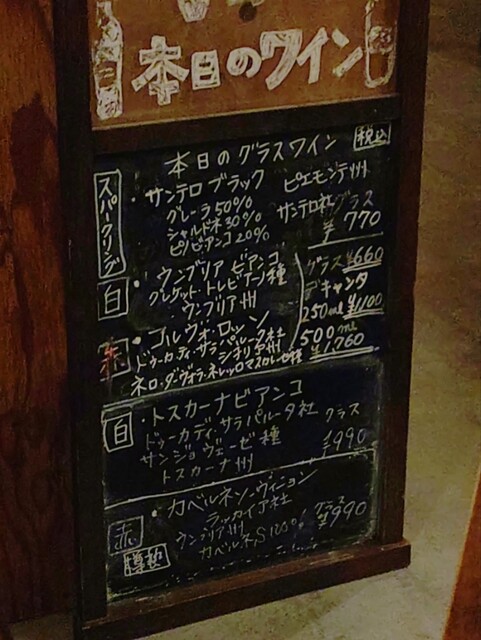 本日のワイン
本日のグラスワイン 税込
スパークリング
・サンテロ ブラック ピエモンテ州
グレーラ 50% サンテロ社 グラス
シャルドネ 30% ¥770
ピノビアンコ 20%
白
・ウンブリア ビアンコ グラス ¥660
グレケット・トレビアーノ種 デキャンタ
ウンブリア州 250ml ¥1100
赤
・コルヴォ・ロッソ 500ml
ドゥーカ・ディ・サラ・パルータ社 ¥1,760
シチリア州
ネロ・ダーヴォラ・ネレッロマスカレーゼ種
白
・トスカーナビアンコ
ドゥーカディ・サラパルータ社 グラス
サンジョヴェーゼ種 ¥990
トスカーナ州
赤
樽熟
・カベルネソーヴィニヨン
ラッカイア社 グラス
ウンブリア州 ¥990
カベルネ,S100%